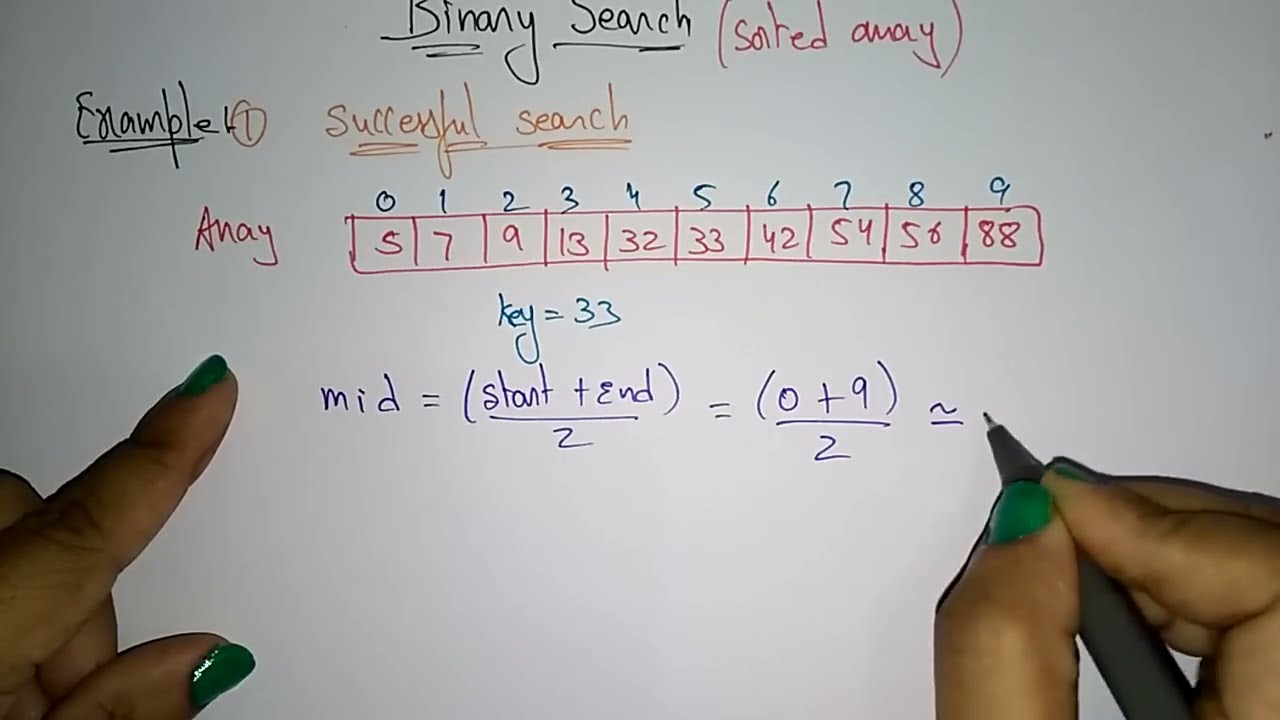 Binary Search (Sorted array)
Example:- ① Successful search
0 1 2 3 4 5 6 7 8 9
Array 5 7 9 13 32 33 42 54 56 88
key = 33
mid = (Start + End) / 2 = (0 + 9) / 2 ≃